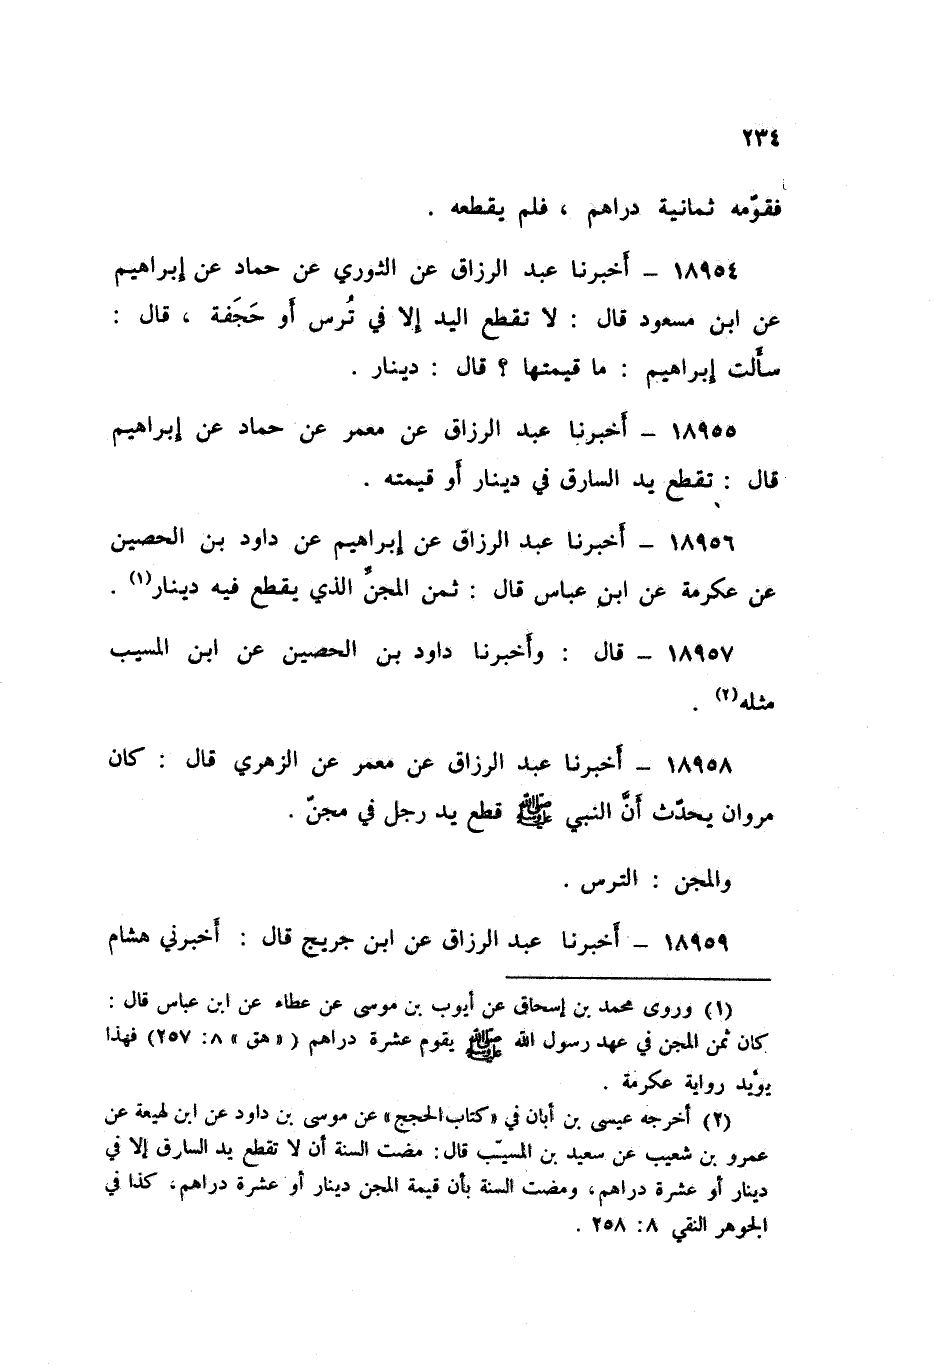 ٢٣٤
فقوّمه ثمانية دراهم ، فلم يقطعه .
١٨٩٥٤ – أخبرنا عبد الرزاق عن الثوري عن حماد عن إبراهيم
عن ابن مسعود قال : لا تقطع اليد إلا في تُرس أو حَجَفة ، قال :
سألت إبراهيم : ما قيمتها ؟ قال : دينار .
١٨٩٥٥ – أخبرنا عبد الرزاق عن معمر عن حماد عن إبراهيم
قال : تقطع يد السارق في دينار أو قيمته .
١٨٩٥٦ – أخبرنا عبد الرزاق عن إبراهيم عن داود بن الحصين
عن عكرمة عن ابن عباس قال : ثمن المجنّ الذي يقطع فيه دينار(١) .
١٨٩٥٧ – قال : وأخبرنا داود بن الحصين عن ابن المسيب
مثله(٢) .
١٨٩٥٨ – أخبرنا عبد الرزاق عن معمر عن الزهري قال : كان
مروان يحدّث أنَّ النبي ﷺ قطع يد رجل في مجنّ .
والمجن : الترس .
١٨٩٥٩ – أخبرنا عبد الرزاق عن ابن جريج قال : أخبرني هشام
(١) وروى محمد بن إسحاق عن أيوب بن موسى عن عطاء عن ابن عباس قال :
كان ثمن المجن في عهد رسول الله ﷺ يقوم عشرة دراهم (« هق » ٨: ٢٥٧) فهذا
يؤيد رواية عكرمة .
(٢) أخرجه عيسى بن أبان في «كتاب الحجج» عن موسى بن داود عن ابن لهيعة عن
عمرو بن شعيب عن سعيد بن المسيّب قال: مضت السنة أن لا تقطع يد السارق إلا في
دينار أو عشرة دراهم، ومضت السنة بأن قيمة المجن دينار أو عشرة دراهم، كذا في
الجوهر النقي ٨: ٢٥٨ .